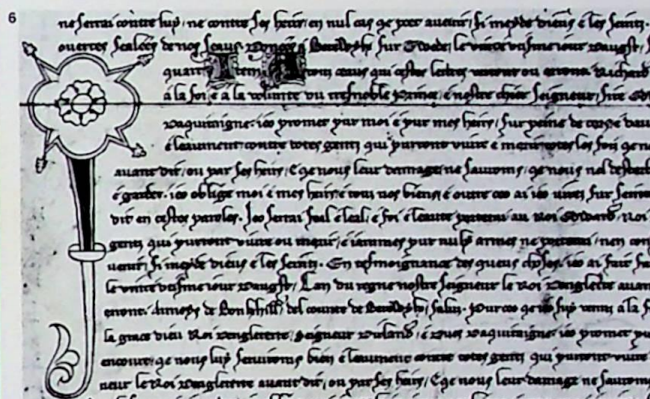 6
ne serrai contre luy, ne contre ses heirs, en nul cas qe poet avenir, si meyde dieus e les seintz.
overtes sealees de nos seaus. Donees a Berewyk sur Twede, le vintz utisme iour Daugst,
quart Item A touz ceaus qui cestes lettres verront ou orront, Richard
a la foi e a la volunte du tresnoble Prince, e nostre chier Seigneur, Sire
Daquitaigne, ieo promet pur moi e pur mes heirs, sur peine de corps e
e leaument contre totes gentz qui purront vivre e morir totes les foiz qe
avant dit, ou par ses heirs, E qe nous leur damage ne saurons, qe nous nel
e garder, ieo oblige moi e mes heirs e touz nos biens, e outre ceo ai ieo iurez sur
dit en cestes paroles. Ieo serrai feal e leal, e foi e leaute porterai au Roi Edward, Roi
gentz qui purront vivre ou morir, e iammes pur nuly armes ne porterai, nen
venir, si meyde dieus e les seintz. En tesmoignance des queus choses, ieo ai fait
le vintz utisme iour Daugst, Lan du regne nostre Seigneur le Roi Dengleterre
orront, de Bonkhill del counte de Berewyk, saluz. Purceo qe ieo suy venu a la
la grace dieu Roi Dengleterre, Seigneur Dirland, e Ducs Daquitaigne, ieo promet
encourre, qe nous luy servirons bien e leaument contre totes gentz qui purront vivre
nour le Roi Dengleterre avant dit, ou par ses heirs, E qe nous leur damage ne saurons